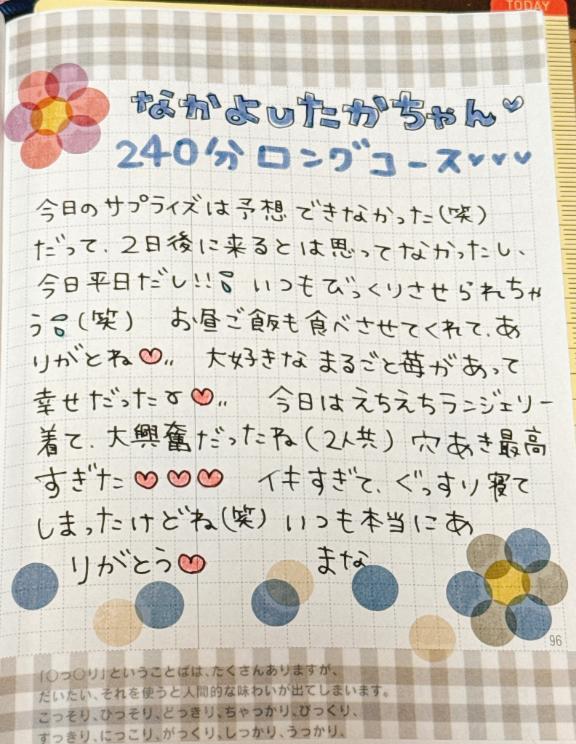 TODAY
なかよしたかちゃん♡
240分ロングコース♥♥♥
今日のサプライズは予想できなかった(笑)
だって、2日後に来るとは思ってなかったし、
今日平日だし!! いつもびっくりさせられちゃ
う(笑) お昼ご飯も食べさせてくれて、あ
りがとね♥,, 大好きなまるごと苺があって
幸せだったな♥,, 今日はえちえちランジェリー
着て、大興奮だったね(2人共) 穴あき最高
すぎた♥♥♥ イキすぎて、ぐっすり寝て
しまったけどね(笑) いつも本当にあ
りがとう♥ まな
96
「○っ○り」ということばは、たくさんありますが、
だいたい、それを使うと人間的な味わいが出てしまいます。
こっそり、ひっそり、どっきり、ちゃっかり、びっくり、
すっきり、にっこり、がっくり、しっかり、うっかり、